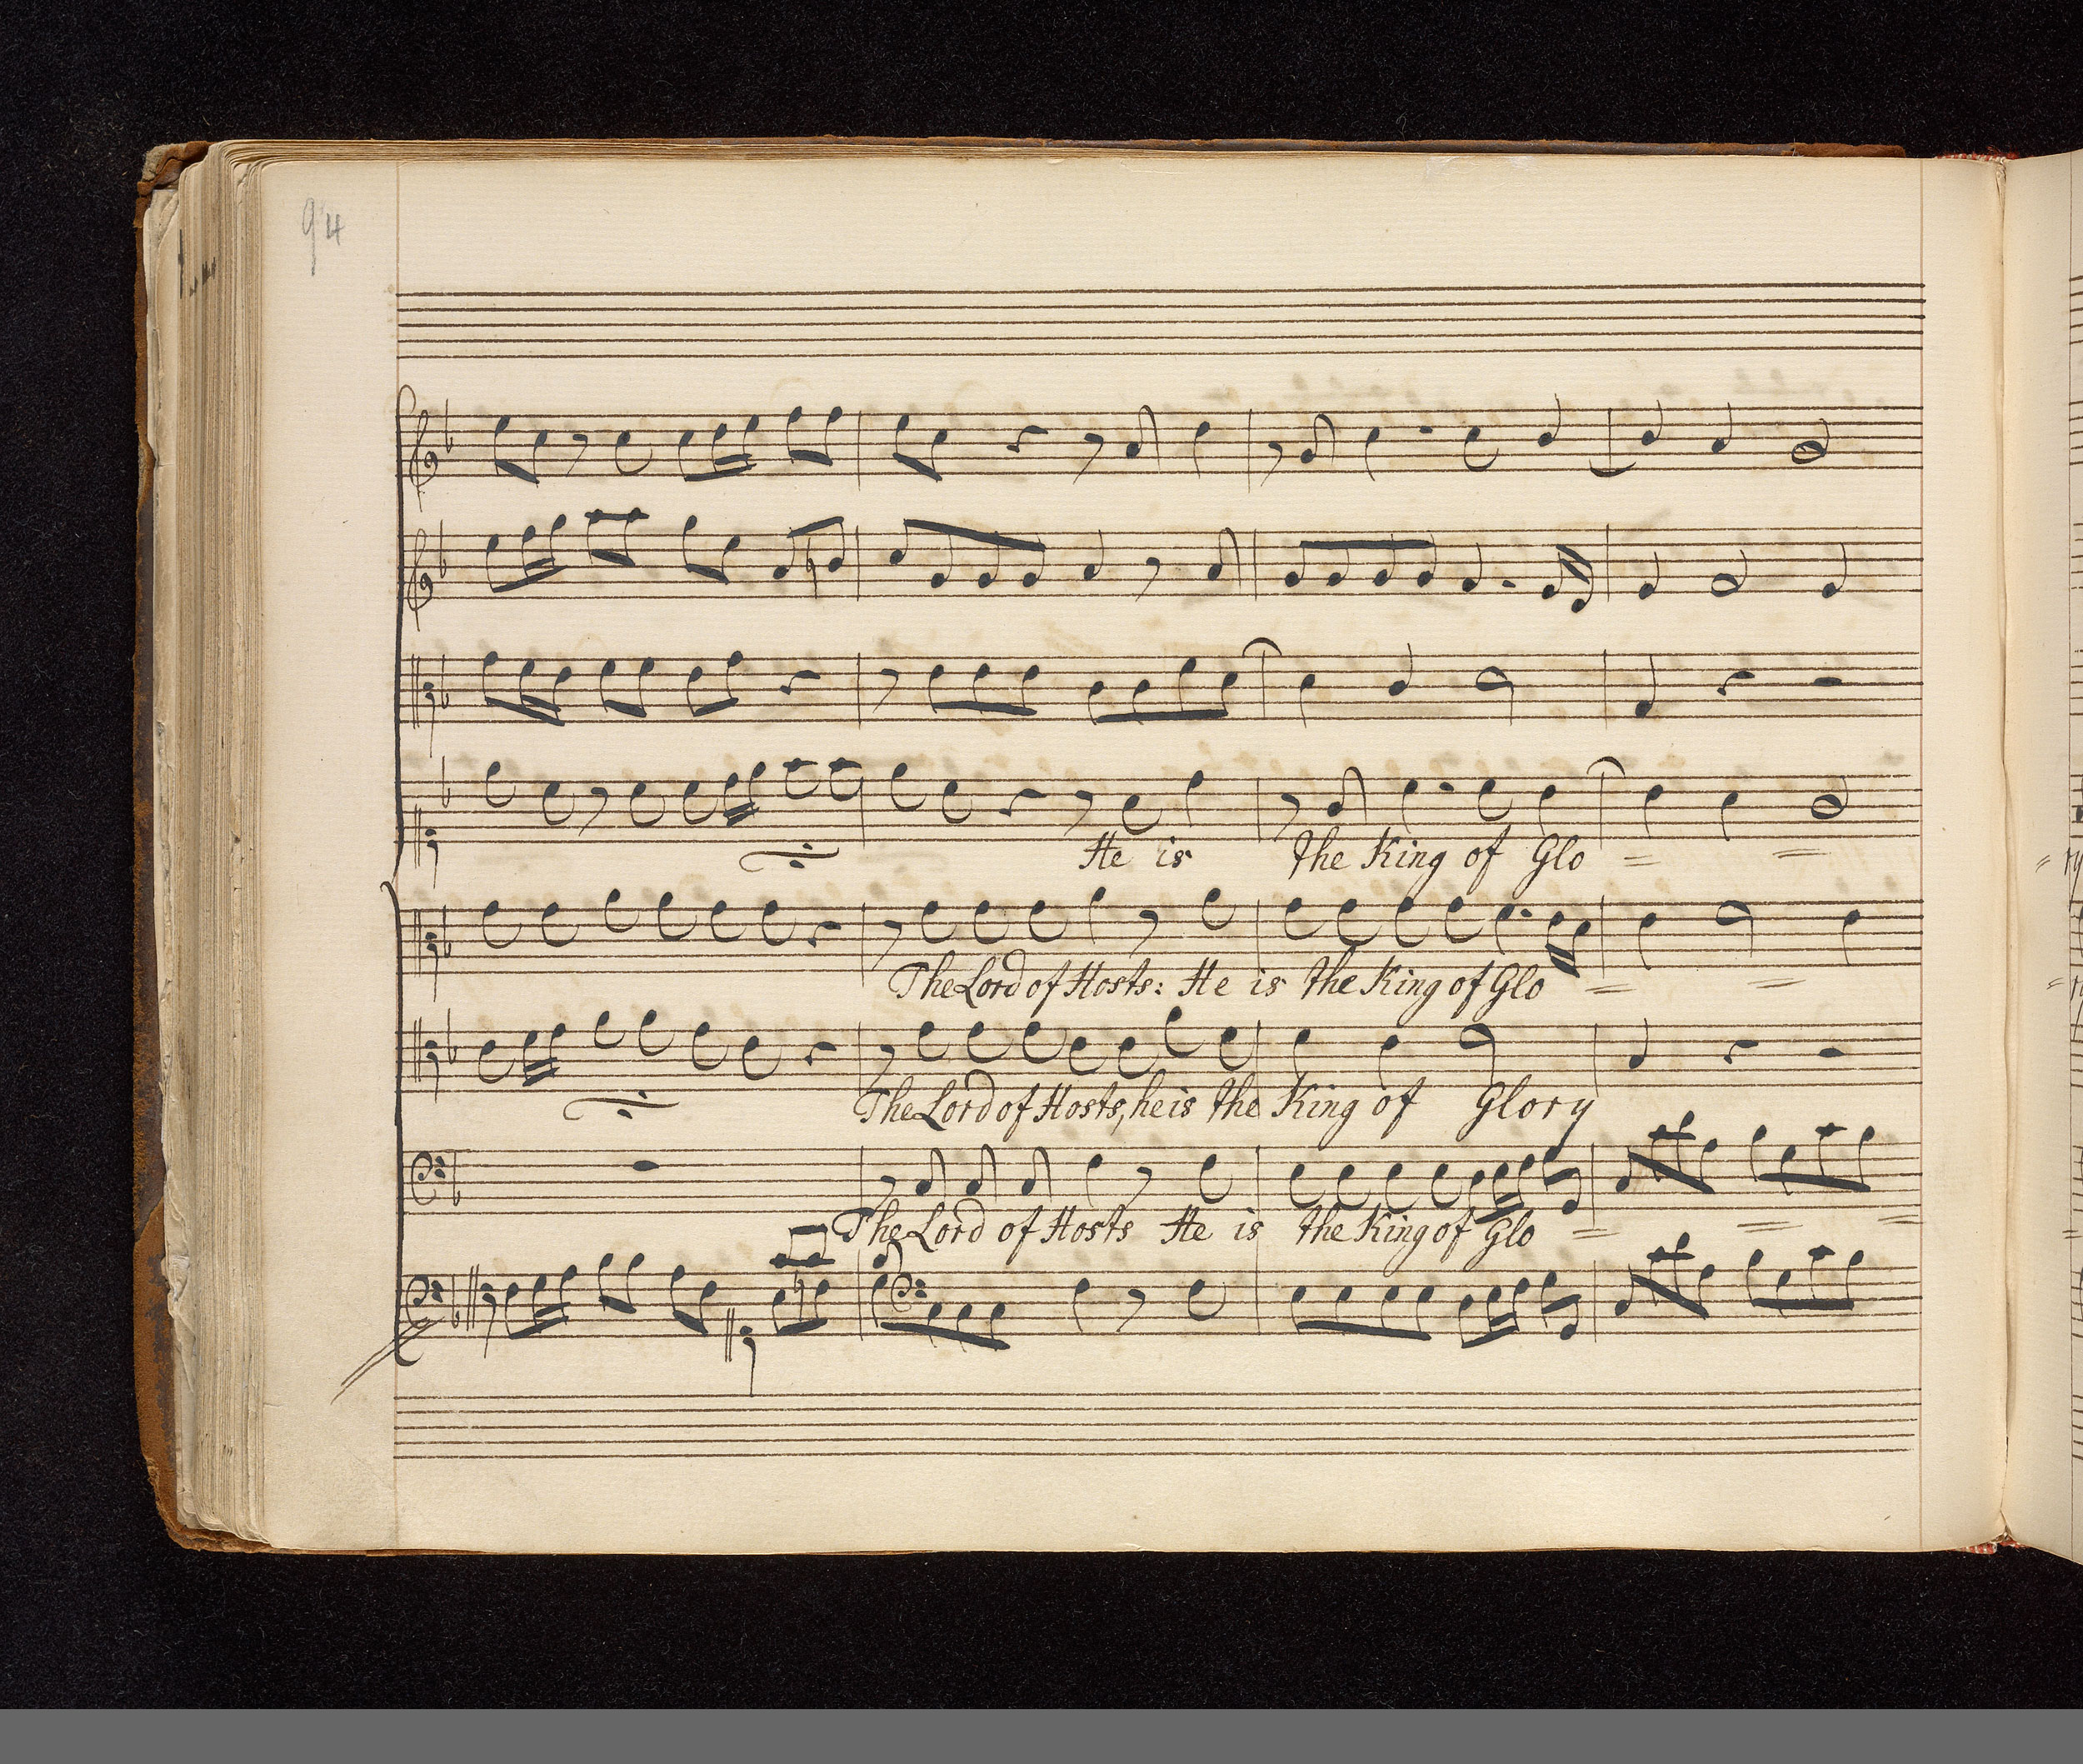 94
He is the King of Glo = =
The Lord of Hosts: He is the King of Glo = =
The Lord of Hosts, he is the King of Glory
The Lord of Hosts He is the King of Glo = = =